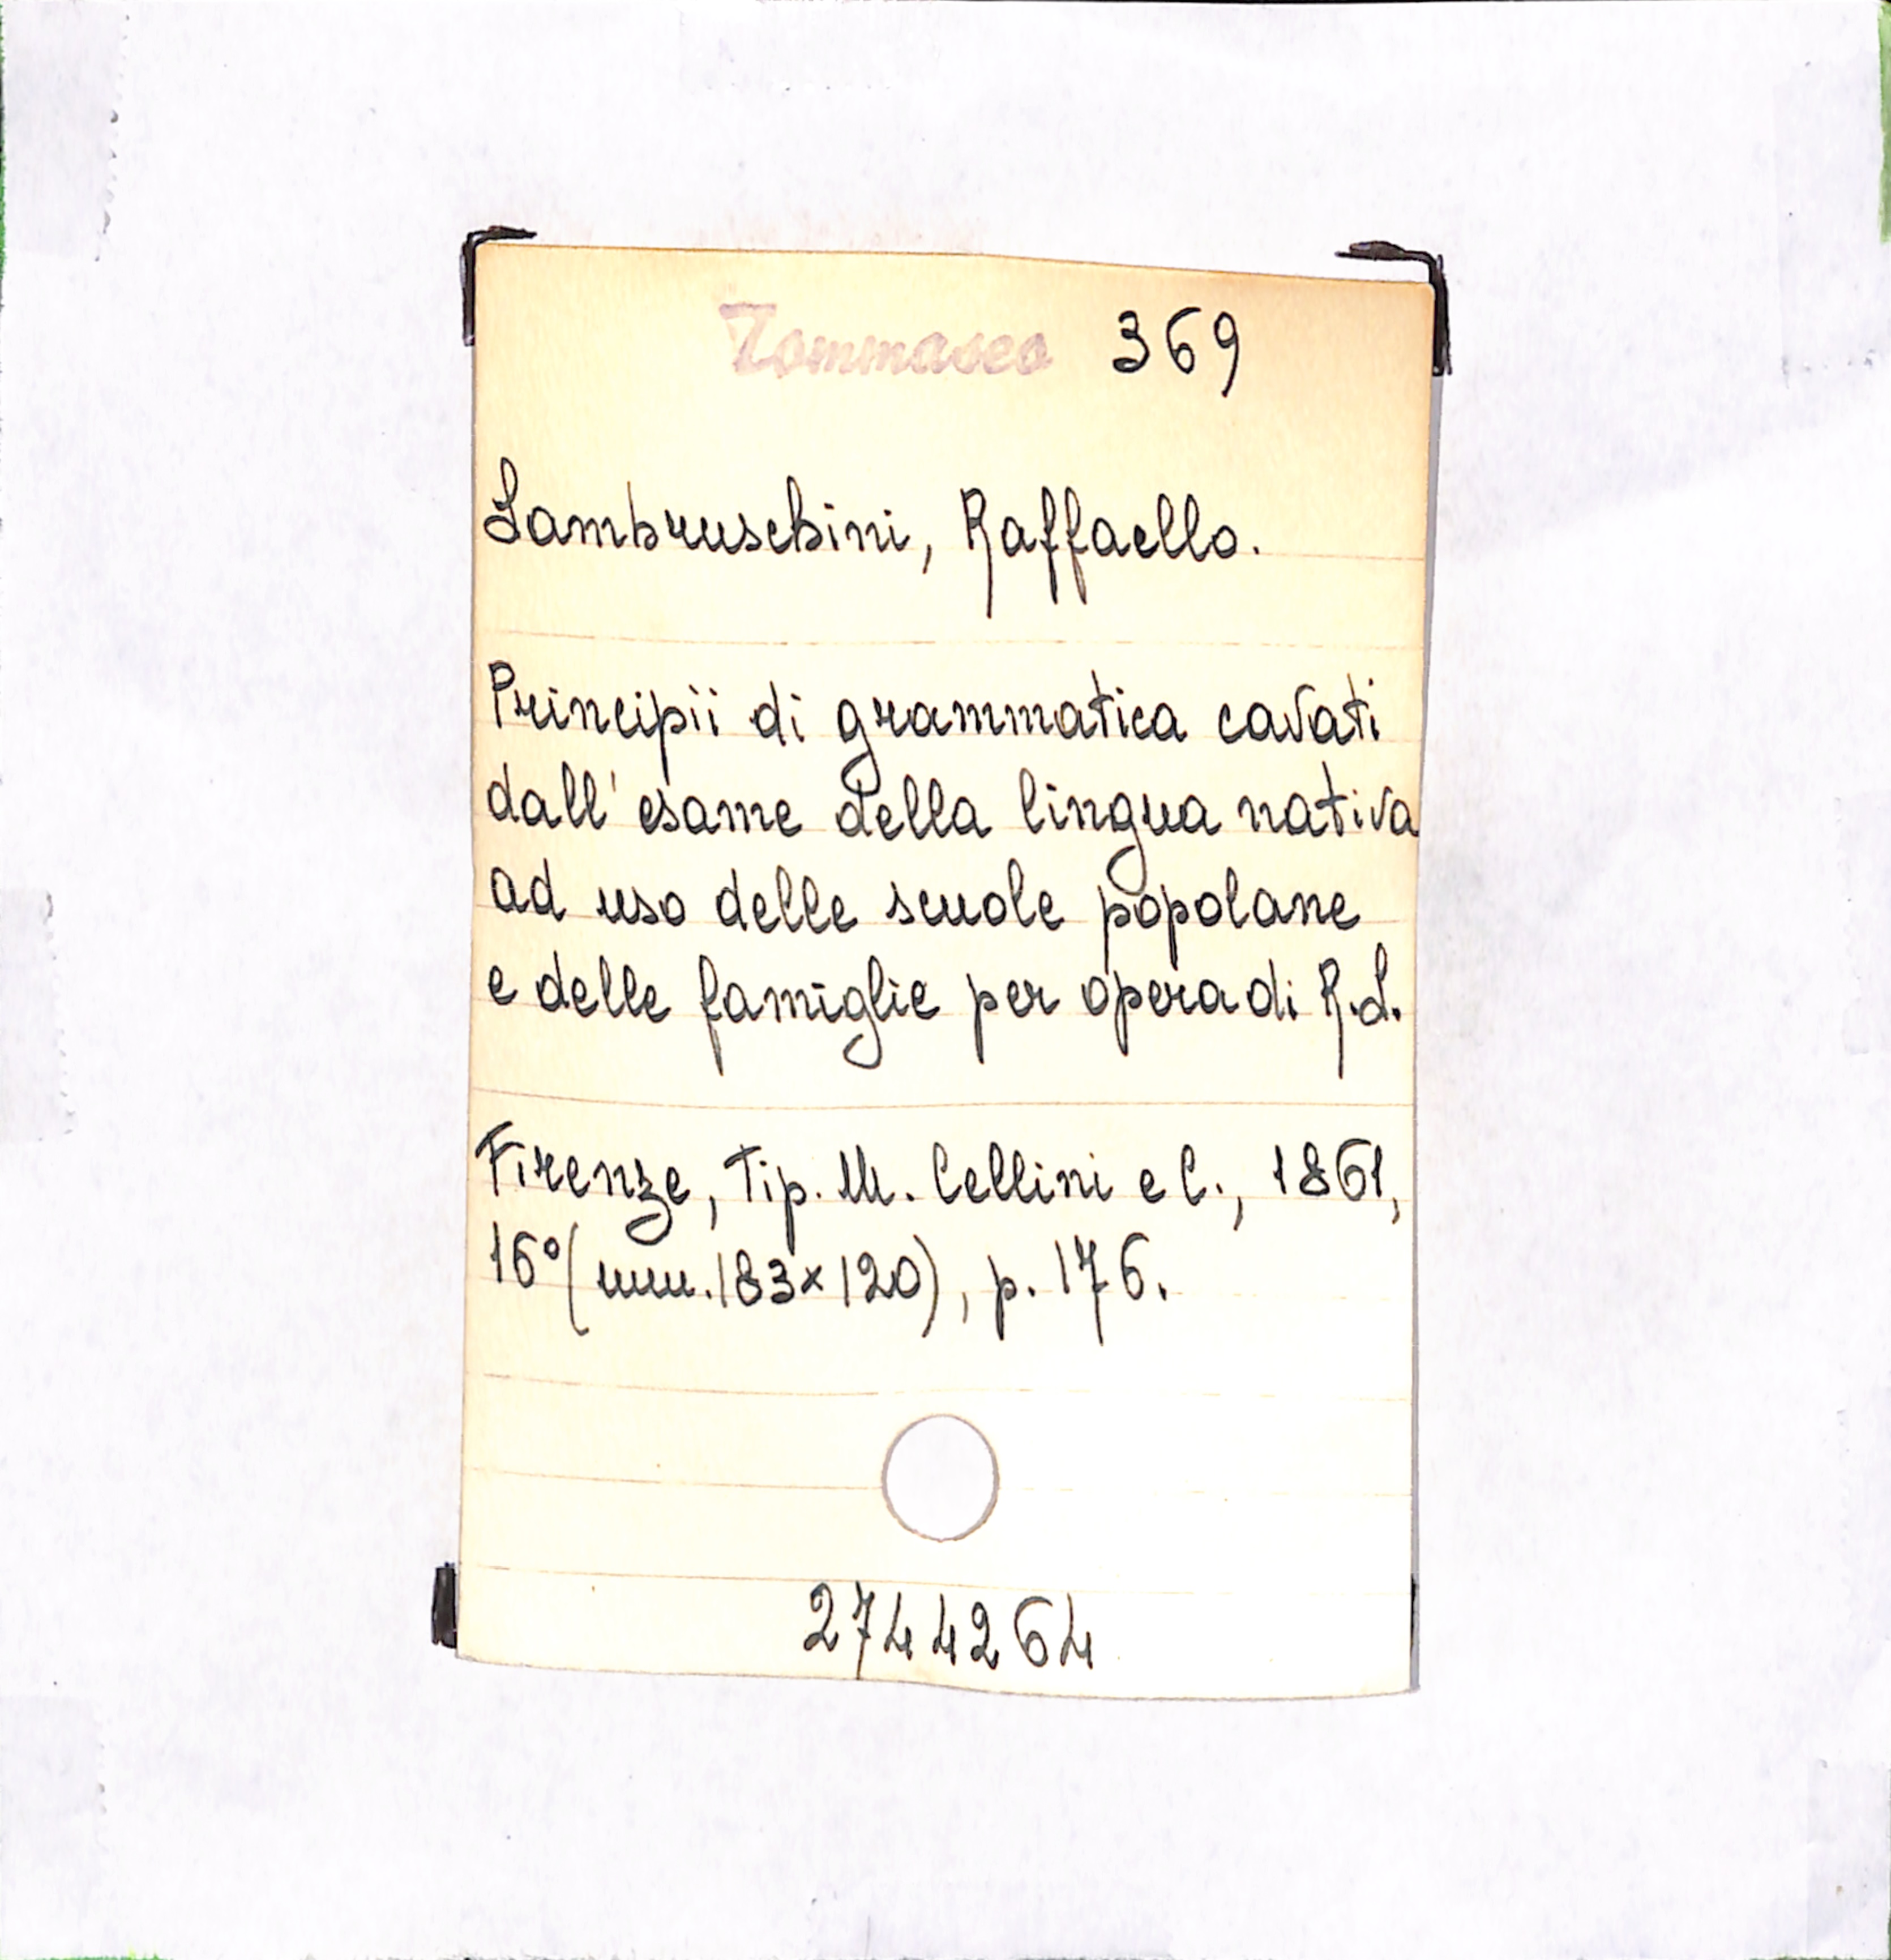 Tommaseo 369
Lambruschini, Raffaello.
Principii di grammatica cavati
dall'esame della lingua nativa
ad uso delle scuole popolane
e delle famiglie per opera di R.L.
Firenze, Tip. M. Cellini e C., 1861,
16°(mm.183×120), p. 176.
2744264